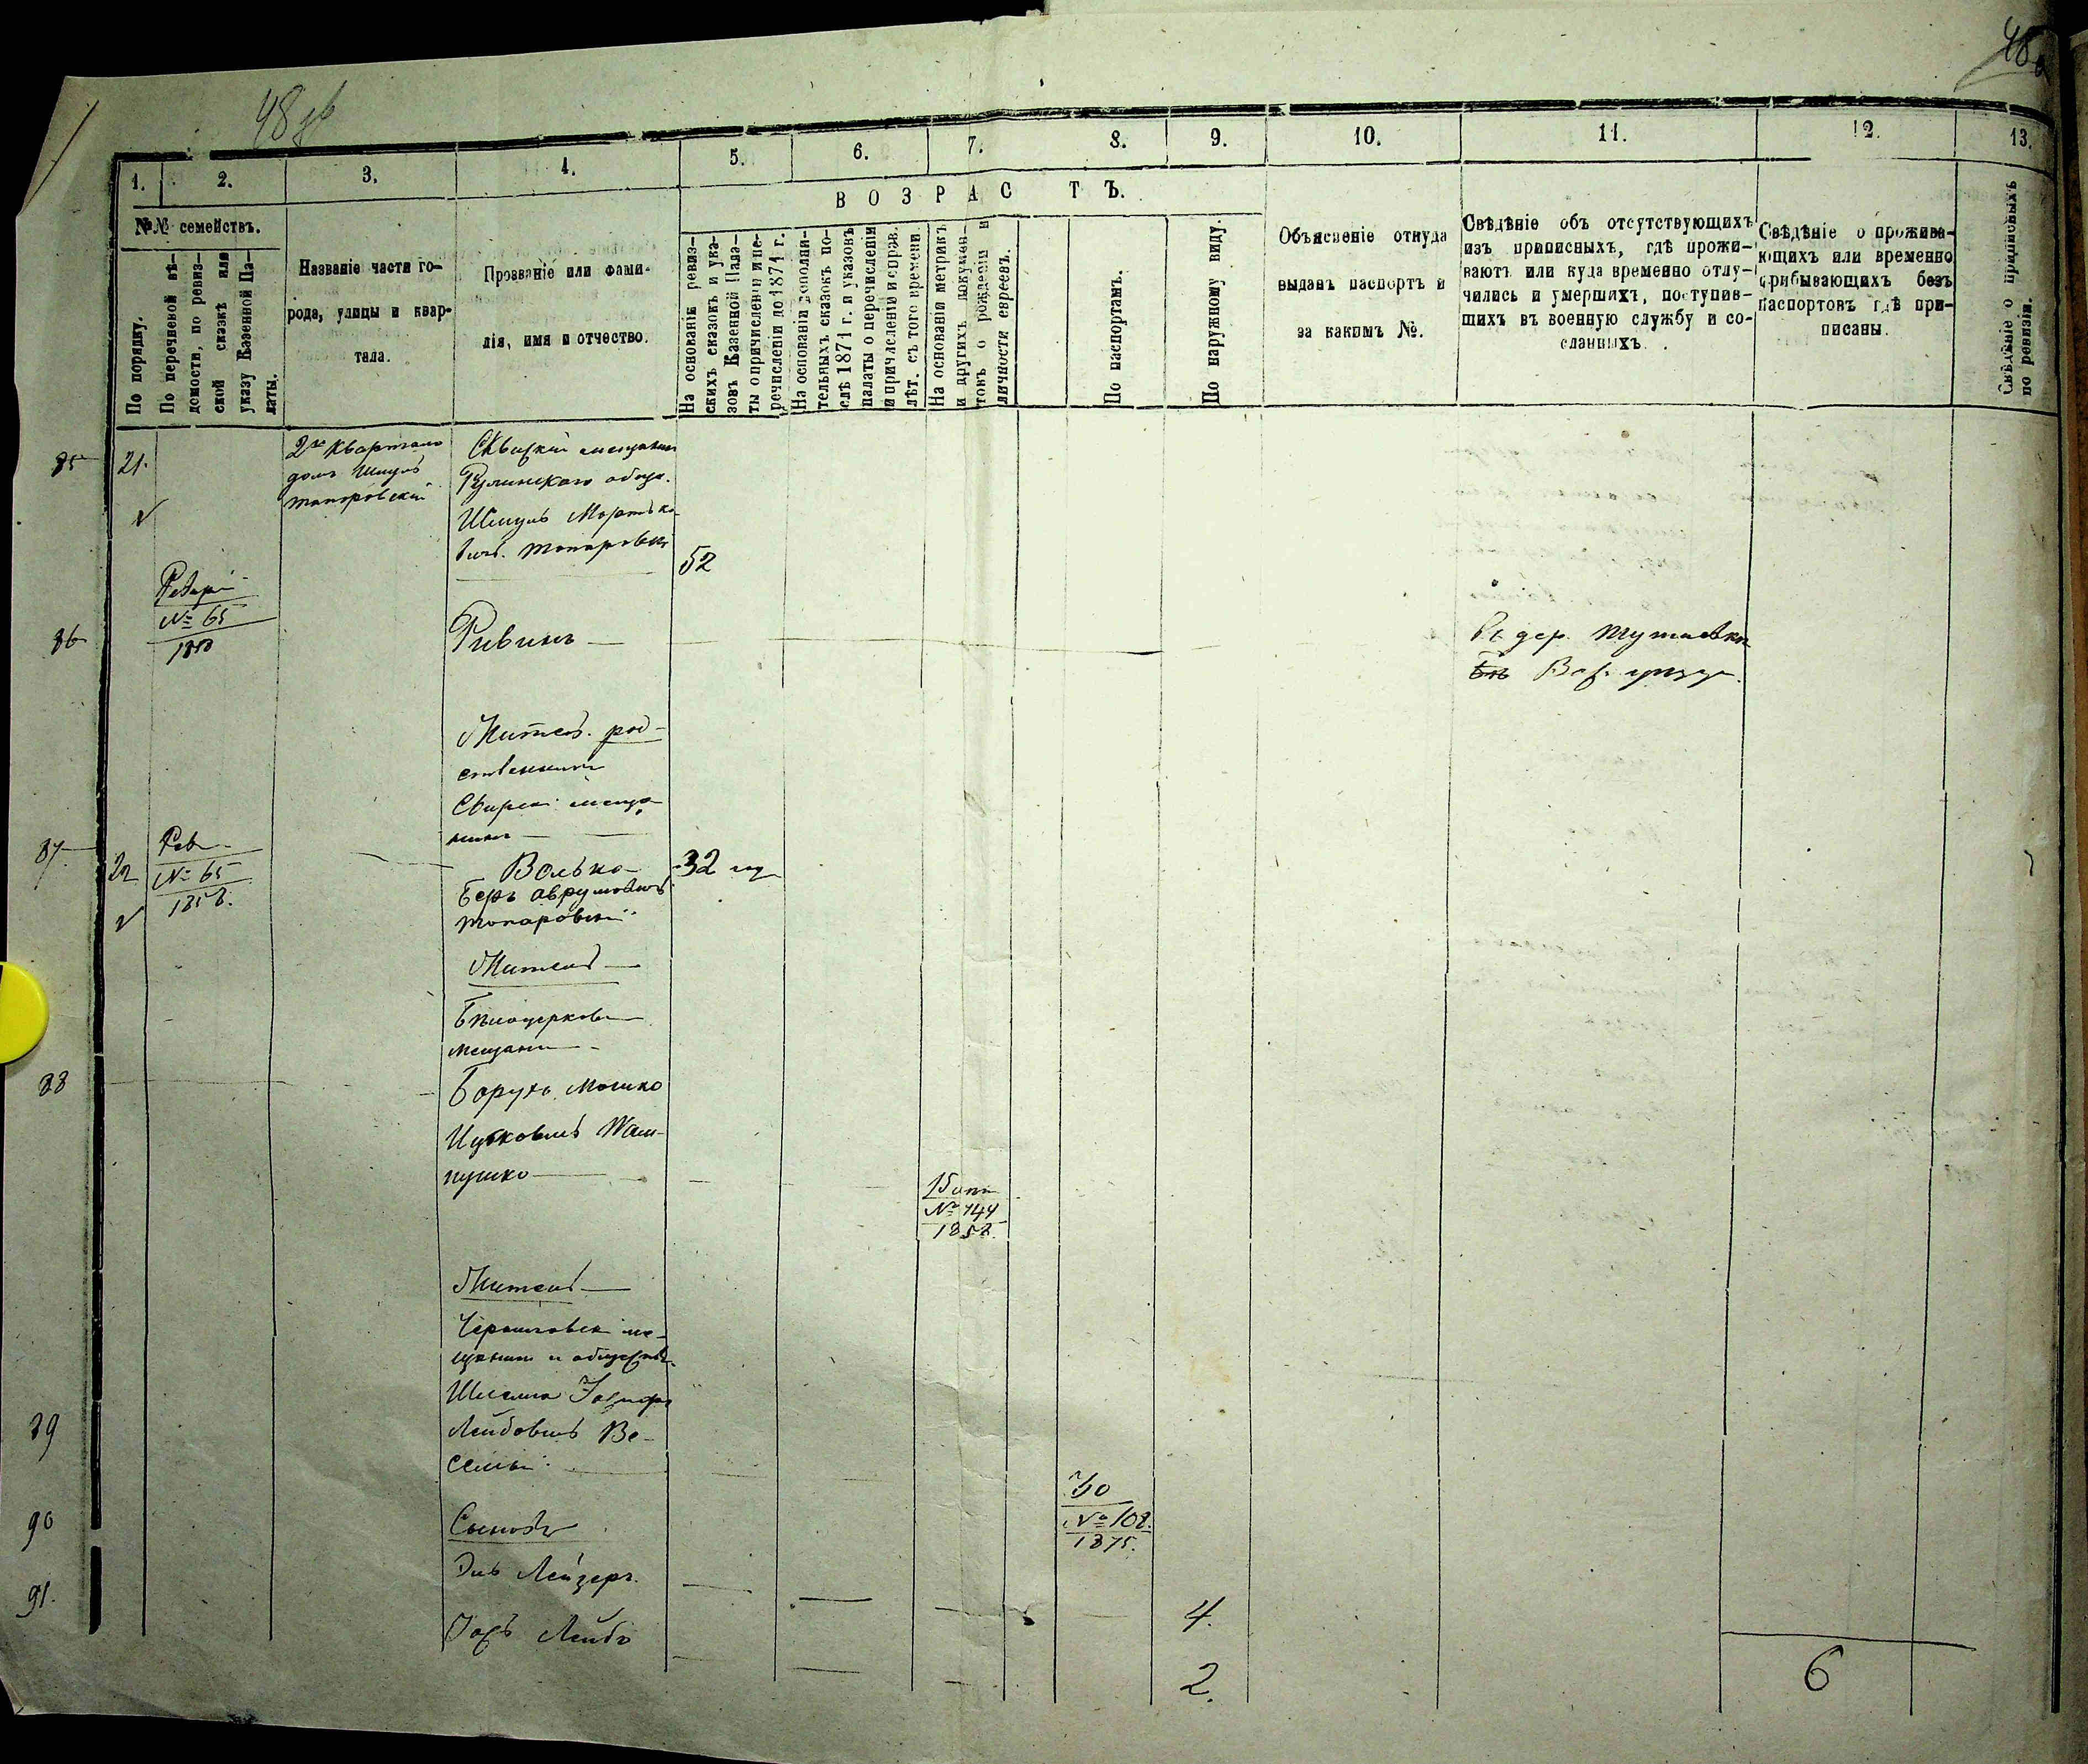 48 об
48а
1.
2.
3.
4.
5.
6.
7.
8.
9.
10.
11.
12.
13.
№№ семействъ.
По порядку.
По перечневой вѣ-
домости, по ревиз-
ской сказкѣ или
указу Казенной Па-
латы.
Названіе части го-
рода, улицы и квар-
тала.
Прозваніе или фами-
лія, имя и отчество.
ВОЗРАСТЪ.
На основаніи ревиз-
скихъ сказокъ и ука-
зовъ Казенной Пала-
ты о причисленіи и пе-
речисленіи до 1871 г.
На основаніи дополни-
тельныхъ сказокъ по-
слѣ 1871 г. и указовъ
палаты о перечисленіи
и причисленіи и справ.
лѣт. съ того времени.
На основаніи метрикъ
и другихъ докумен-
товъ о рожденіи и
личности евреевъ.
По паспортамъ.
По наружному виду.
Объясненіе откуда
выданъ паспортъ и
за какимъ №.
Свѣдѣніе объ отсутствующихъ
изъ приписныхъ, гдѣ прожи-
ваютъ или куда временно отлу-
чились и умершихъ, поступив-
шихъ въ военную службу и со-
сланныхъ.
Свѣдѣніе о прожива-
ющихъ или временно
прибывающихъ безъ
паспортовъ гдѣ при-
писаны.
Свѣдѣніе о приписныхъ
по ревизіи.
85
21.
2го квартала
домъ Шмуль
Топоровскій
Сквирскій мещанинъ
Ружинскаго общ.
Шмуль Мортько-
вичъ Топоровскій
52
86
№ 65
1858
Рувинъ
Въ дер.
Жител. род-
ственники
Сквирск. меща-
нинъ
87
22
Рев.
№ 65
1858.
Волько
Беръ Аврумовичъ
Топоровскій
32
Жител
Бѣлоцерков
мещанин
88
Борухъ Мошко
Ицковичъ
пушко
15 лѣт
№ 144
1858.
Жител
ме-
щанин и
Шлема
89
Лейбовичъ Ве-
селый
30
№ 102.
1875.
90
Сыновья
Эль Лейзеръ.
4.
91.
Лейба
2.
6